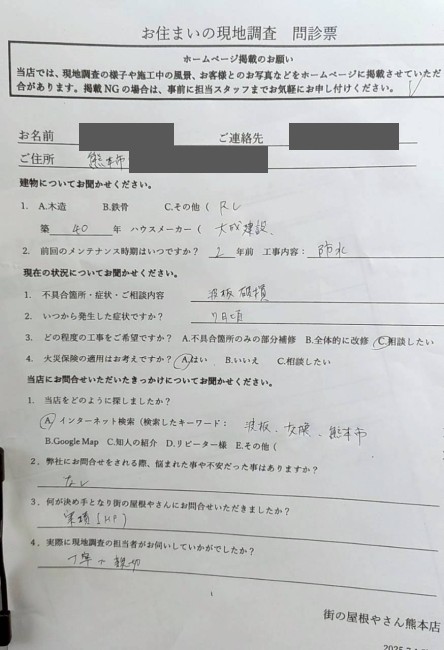 お住まいの現地調査　問診票
ホームページ掲載のお願い
当店では、現地調査の様子や施工中の風景、お客様とのお写真などをホームページに掲載させていただ
合があります。掲載NGの場合は、事前に担当スタッフまでお気軽にお申し付けください。
お名前　　ご連絡先
ご住所　熊本市
建物についてお聞かせください。
1. A.木造　B.鉄骨　C.その他（ RC
築 40 年　ハウスメーカー（ 大成建設
2. 前回のメンテナンス時期はいつですか？ 2 年前　工事内容： 防水
現在の状況についてお聞かせください。
1. 不具合箇所・症状・ご相談内容　波板 破損
2. いつから発生した症状ですか？　7月頃
3. どの程度の工事をご希望ですか？ A.不具合箇所のみの部分補修 B.全体的に改修 C.相談したい
4. 火災保険の適用はお考えですか？ A.はい B.いいえ C.相談したい
当店にお問合せいただいたきっかけについてお聞かせください。
1. 当店をどのように探しましたか？
A インターネット検索（検索したキーワード： 波板、交換、熊本市
B.Google Map C.知人の紹介 D.リピーター様 E.その他（
2. 弊社にお問合せをされる際、悩まれた事や不安だった事はありますか？
なし
3. 何が決め手となり街の屋根やさんにお問合せいただきましたか？
実績（HP）
4. 実際に現地調査の担当者がお伺いしていかがでしたか？
丁寧で親切
1
街の屋根やさん熊本店